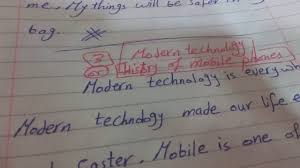 me. My things will be safer in my
bag.
Modern technology
or History of mobile phones
Modern technology is everywh
Modern technology made our life e
faster. Mobile is one of